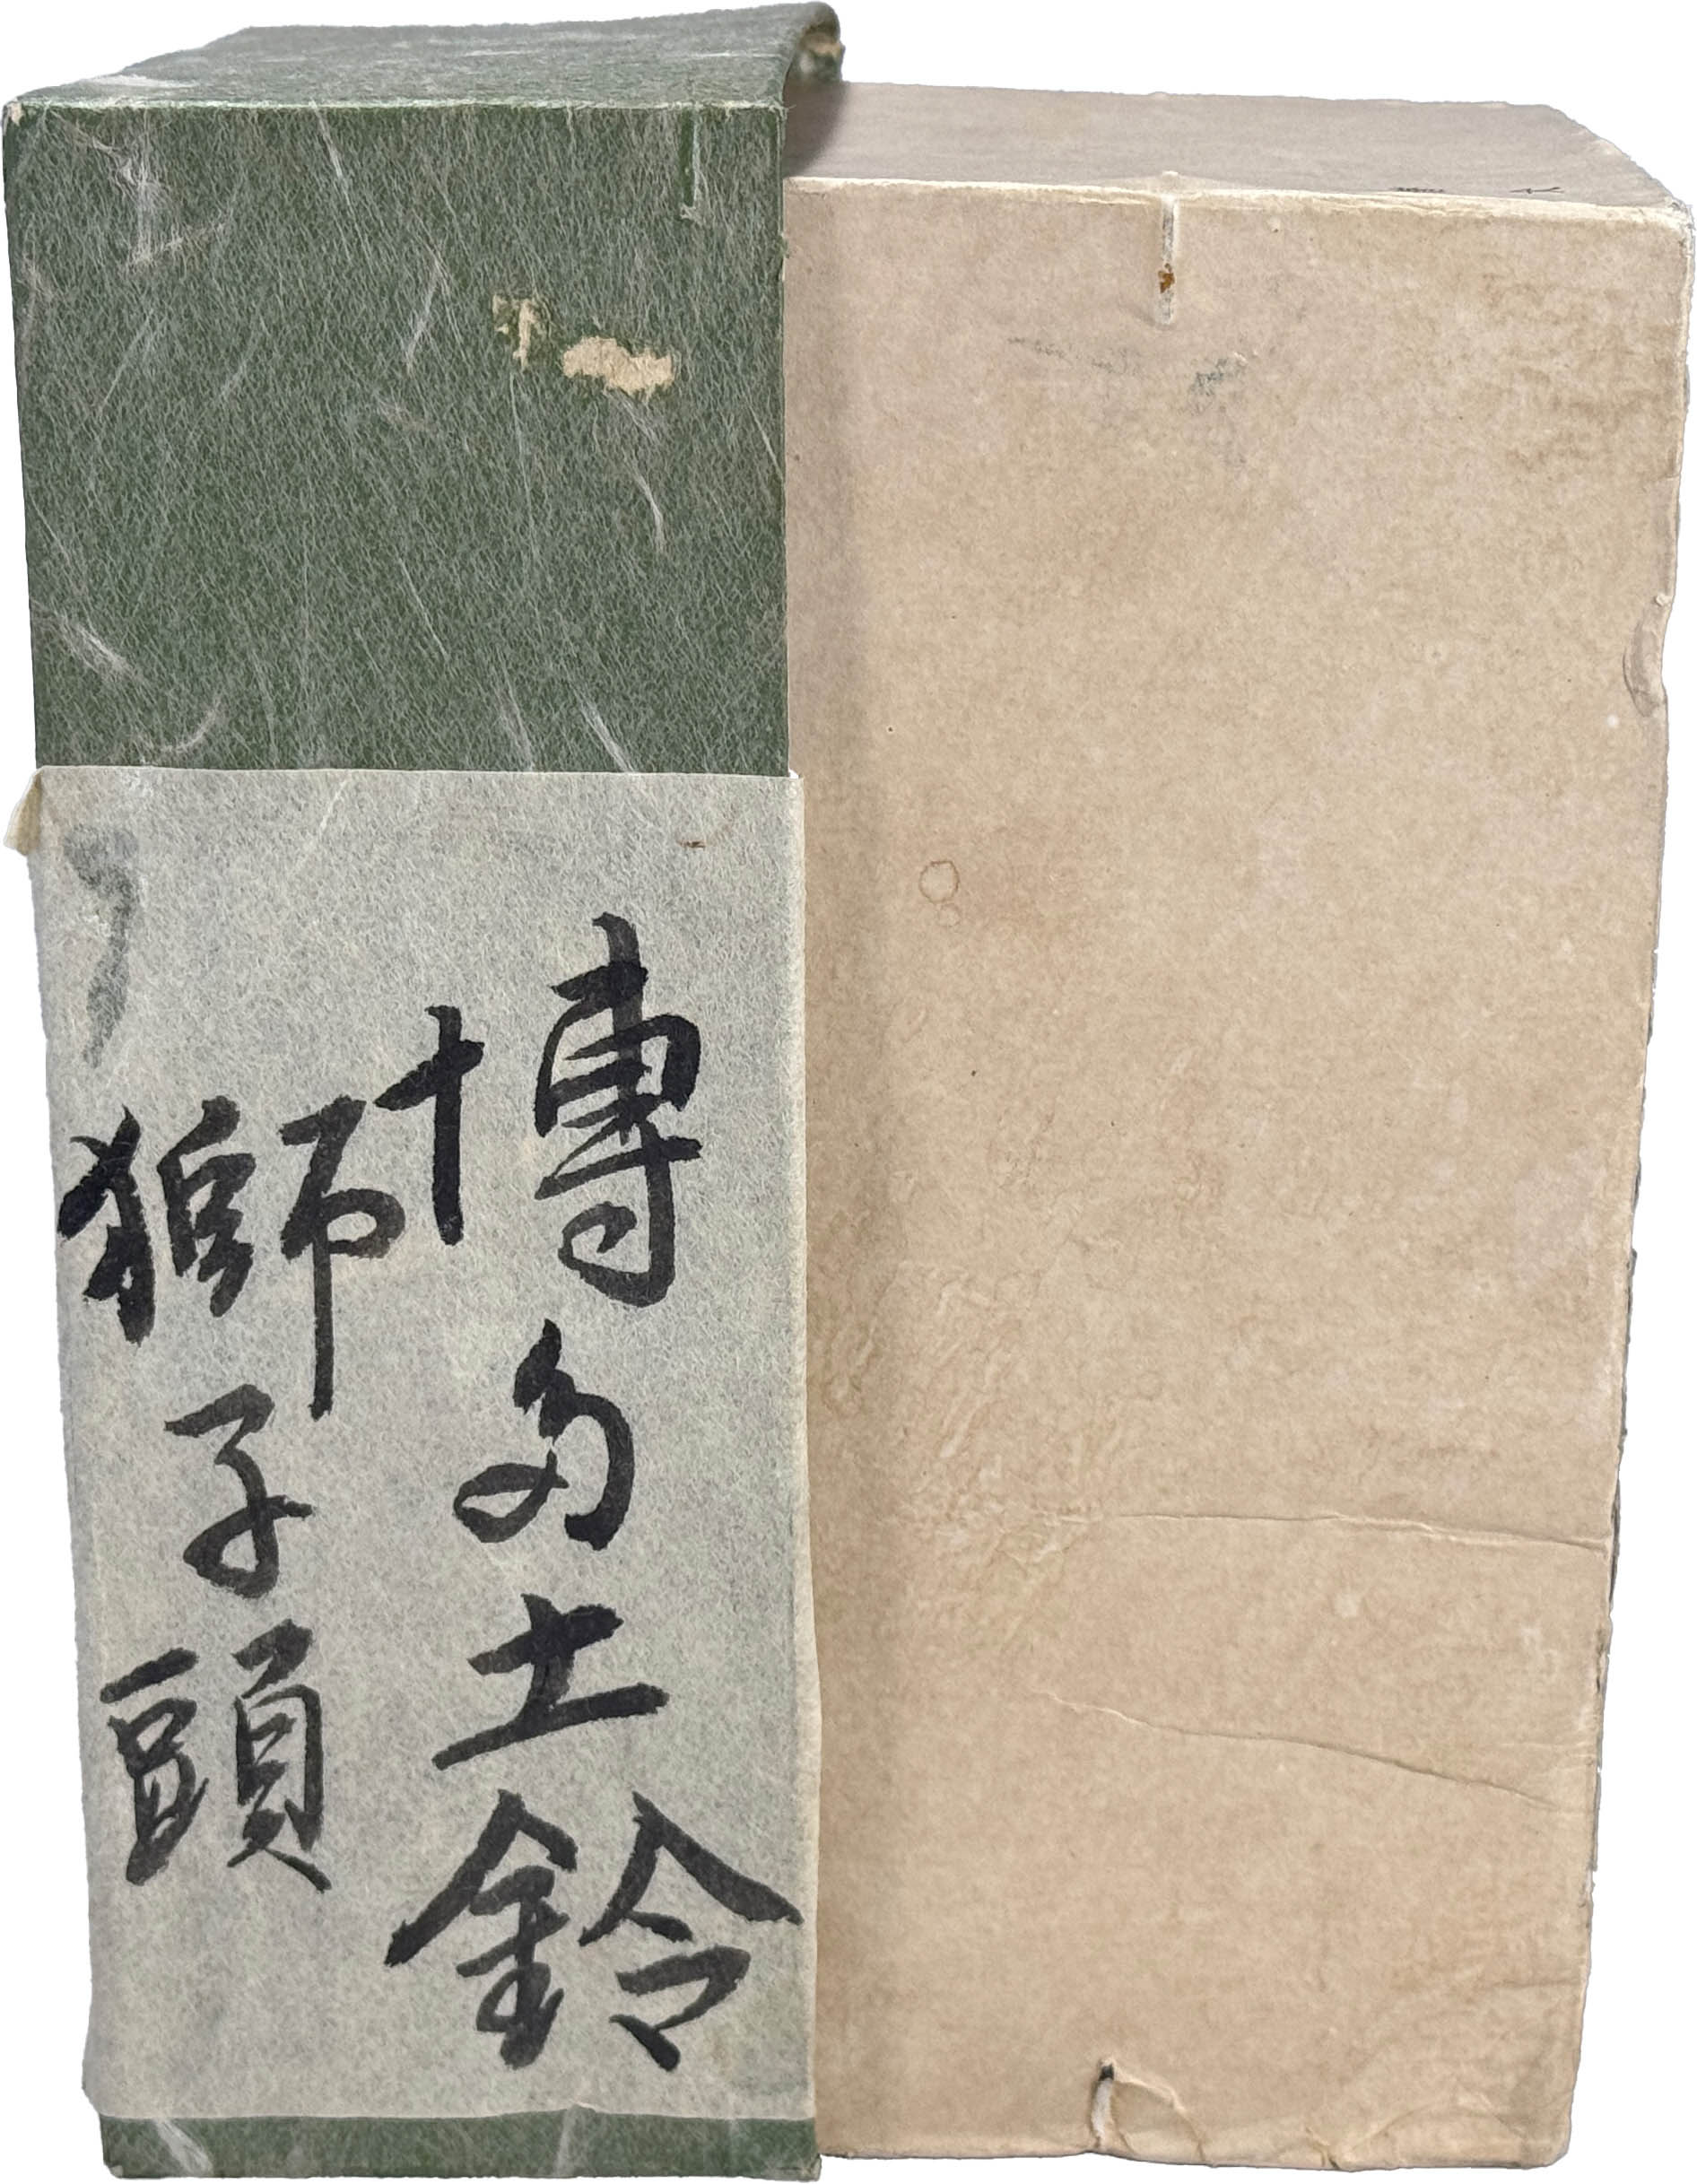 博多土鈴
獅子頭